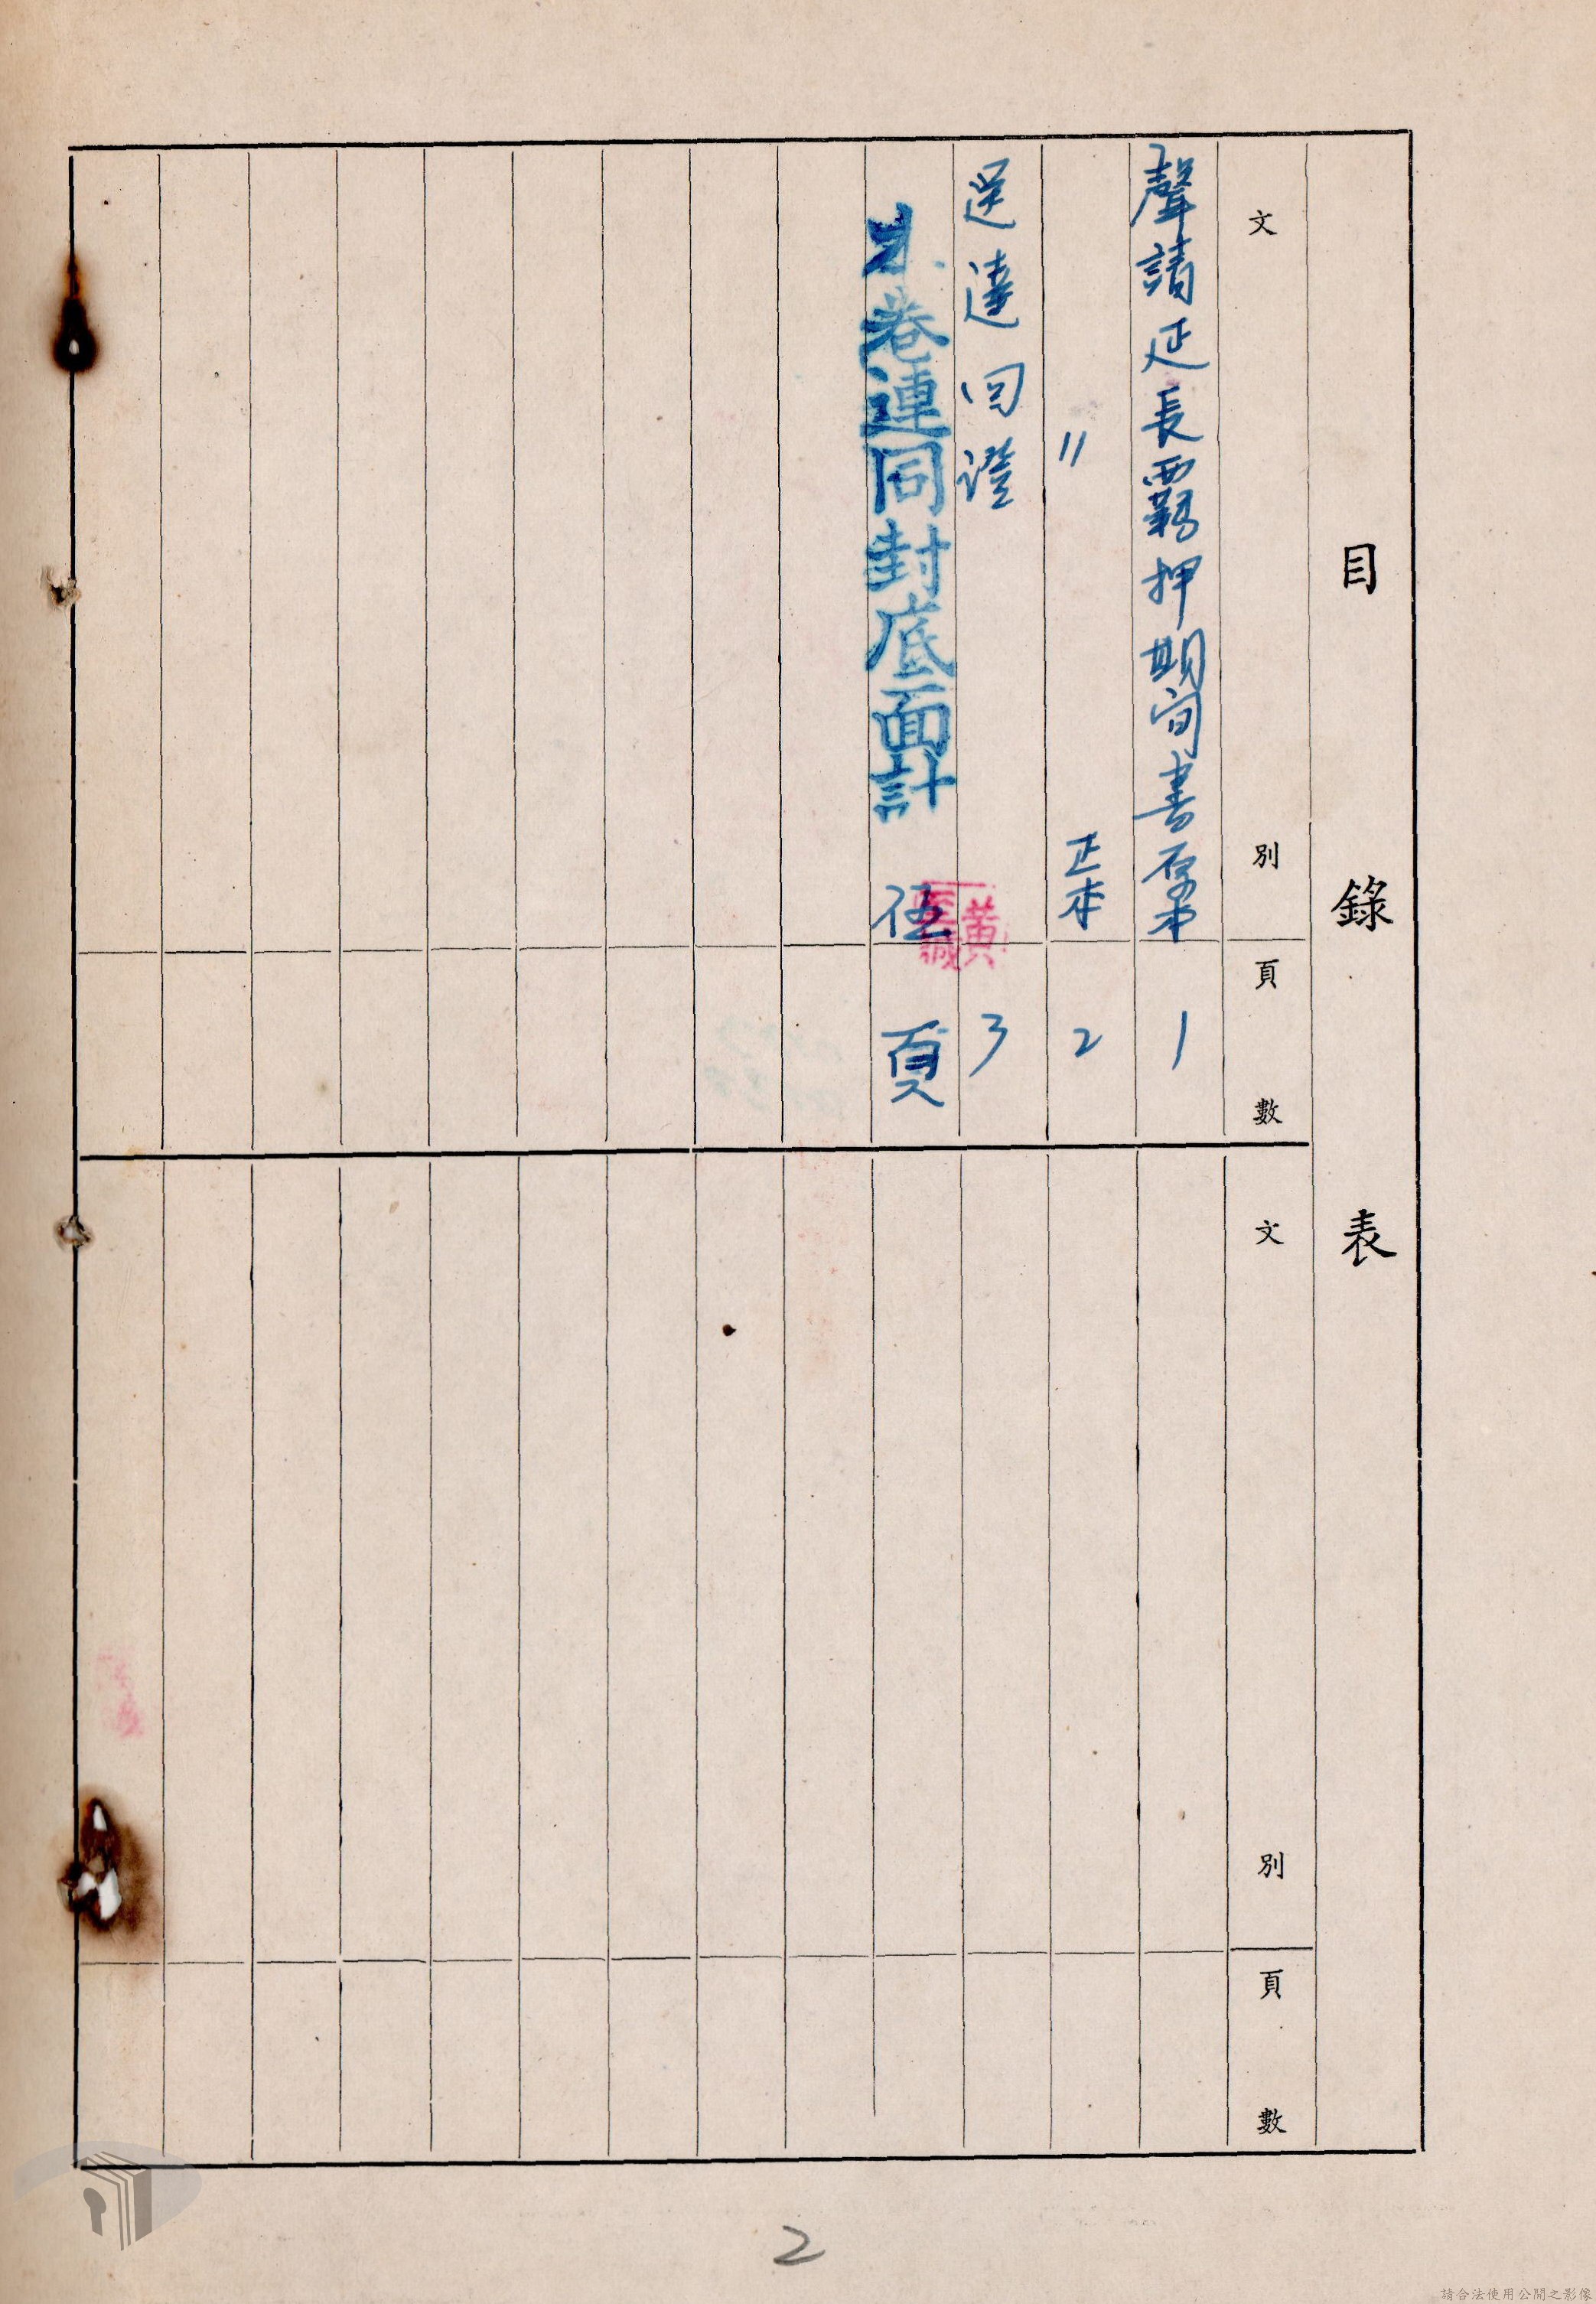 目錄表
文別
頁數
聲請延長羈押期間書原本
1
〃
正本
2
送達回證
3
本卷連同封底面計
伍
頁
黃
誠
文別
頁數
2
請合法使用公開之影像